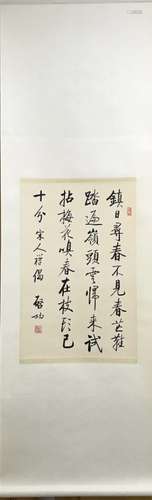 鎮日尋春不見春芒鞋
踏遍嶺頭雲歸來試
拈梅花嗅春在枝頭已
十分 宋人禪偈 啟功